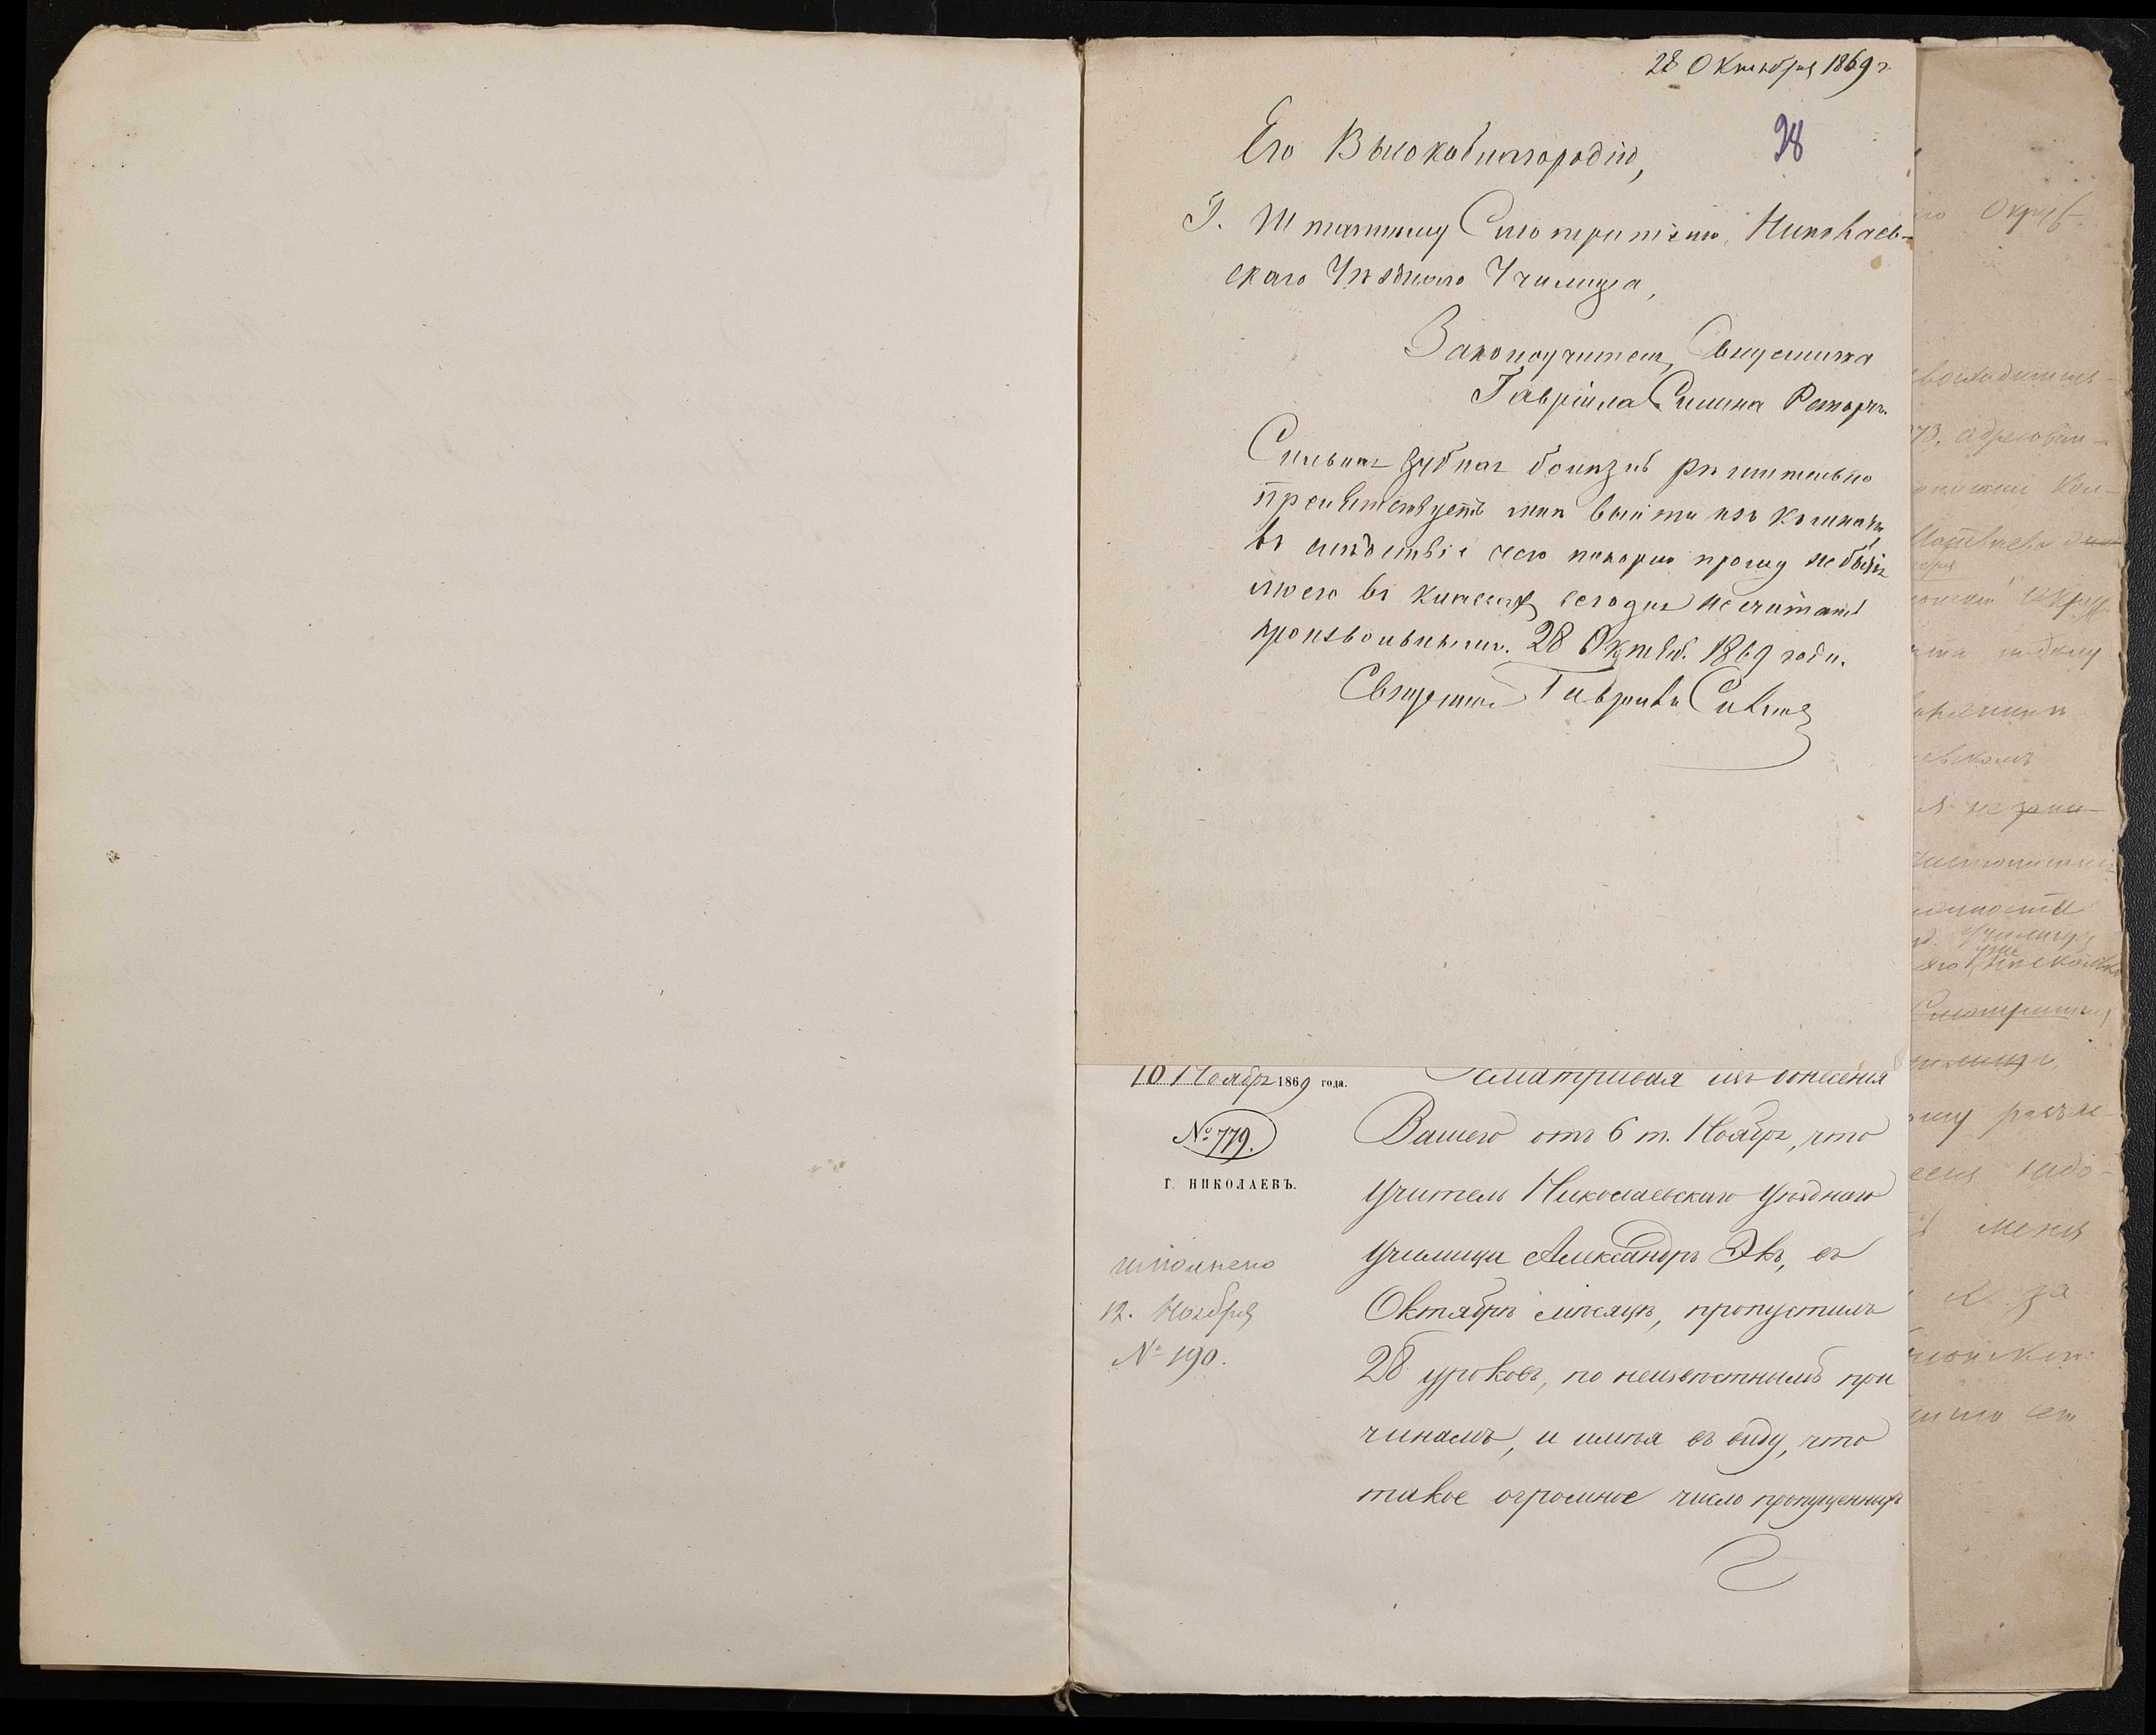 28 Октября 1869 г
28
Его Высокоблагородію,
Г. Штатному Смотрителю Николаев-
скаго Уѣзднаго Училища,
Законоучителя, Священника
Гавріила Силина Рапортъ.
Сильная зубная болѣзнь рѣшительно
препятствуетъ мнѣ выйти изъ комнаты,
въ слѣдствіе чего покорно прошу небытія
моего въ классахъ сегодня не считать
произвольнымъ. 28 Октяб. 1869 года.
Священникъ Гавріилъ
10 Ноября 1869 года.
№ 779.
Г. НИКОЛАЕВЪ.
исполнено
12. Ноября
№ 190.
Усматривая изъ донесенія
Вашего отъ 6 т. Ноября, что
учитель Николаевскаго Уѣзднаго
Училища Александръ Экъ, въ
Октябрѣ мѣсяцѣ, пропустилъ
28 уроковъ, по неизвѣстнымъ при
чинамъ, и имѣя въ виду, что
такое огромное число пропущенныхъ
Округ
73, адресован-
Кол-
меня
за